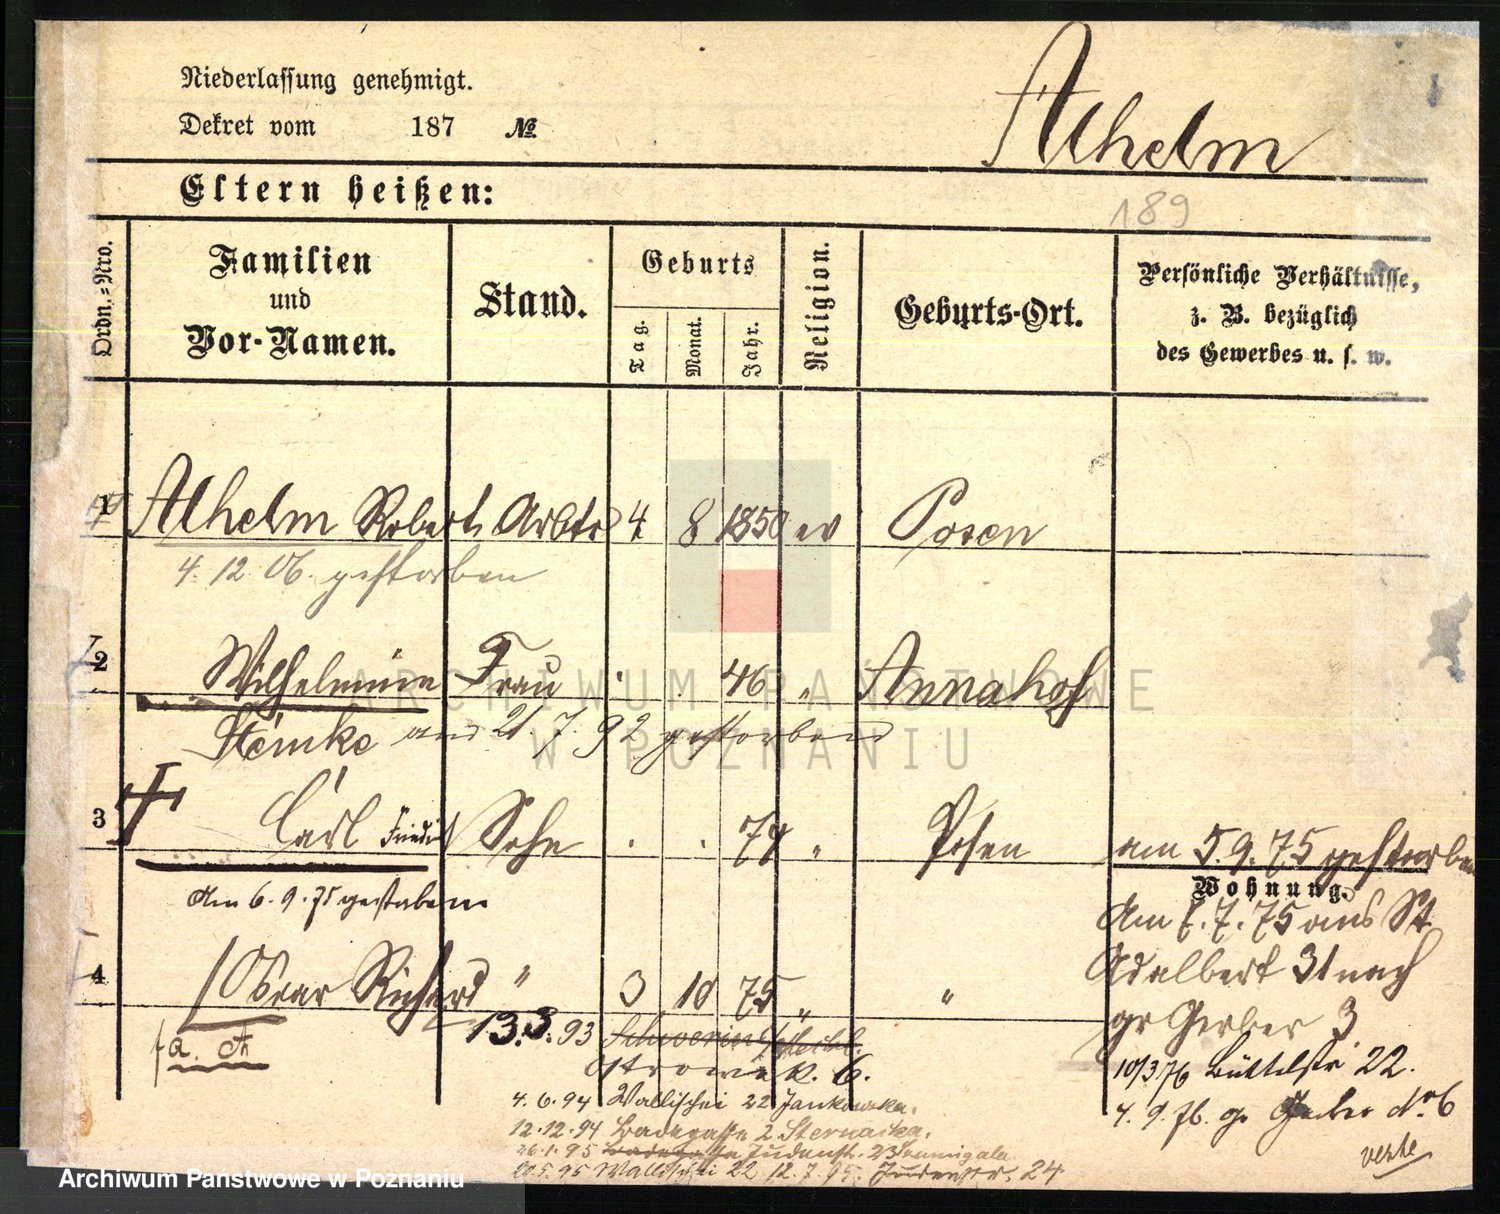 Niederlassung genehmigt.
Dekret vom 187 №
Alhelm
Eltern heißen:
189
Ordn.=Nro.
Familien und Vor-Namen.
Stand.
Geburts
Tag. Monat. Jahr.
Religion.
Geburts-Ort.
Persönliche Verhältnisse,
z. B. bezüglich
des Gewerbes u. s. w.
1 Alhelm Robert Arbtr 4 8 1850 ev Posen
4. 12. 06. gestorben
2 Wilhelmine Frau 46 " Annahof
Steinke am 21. 7. 92 gestorben
3 Carl Sohn 74 " Posen am 5. 9. 75 gestorben
Am 6. 9. 75 gestorben
Wohnung.
Am 7. 7. 75 aus St.
Adalbert 31 nach
gr Gerber 3
4 Oscar Richard " 3 10 75 " "
13. 3. 93 Schwerin
Ostrowek. 6.
10/3 76 Büttelstr 22.
4. 6. 94 Wallischei 22 Jankowska.
4. 9. 76. gr Gerber No 6
12. 12. 94 Badegasse 2
26. 1. 95 Badegasse Judenstr. 23
20. 5. 95 Wallischei 22 12. 7. 95. Judenstr. 24
verte
ARCHIWUM PAŃSTWOWE
W POZNANIU
Archiwum Państwowe w Poznaniu